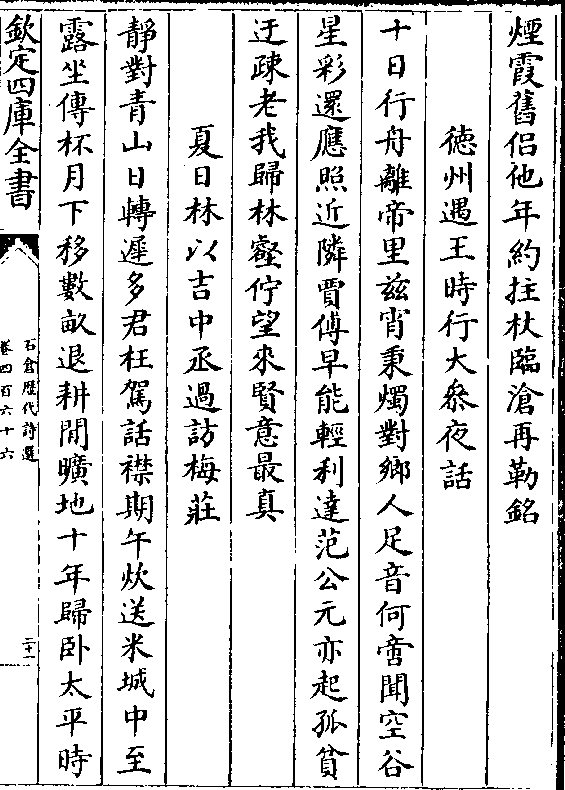 煙霞舊侣他年約拄杖臨滄再勒銘
徳州遇王時行大叅夜話
十日行舟離帝里兹宵秉燭對鄉人足音何啻聞空谷
星彩還應照近隣賈傅早能輕利達范公元亦起孤貧
迂疎老我歸林壑佇望來賢意最真
夏日林以吉中丞過訪梅莊
靜對青山日轉遲多君枉駕話襟期午炊送米城中至
露坐傳杯月下移數畝退耕閒曠地十年歸卧太平時
欽定四庫全書
石倉歴代詩選
卷四百六十六
二十一